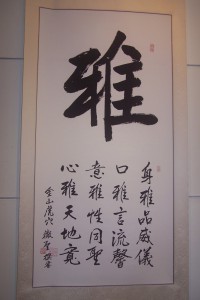 雅
身雅品威儀
口雅言流馨
意雅性同聖
心雅天地寬